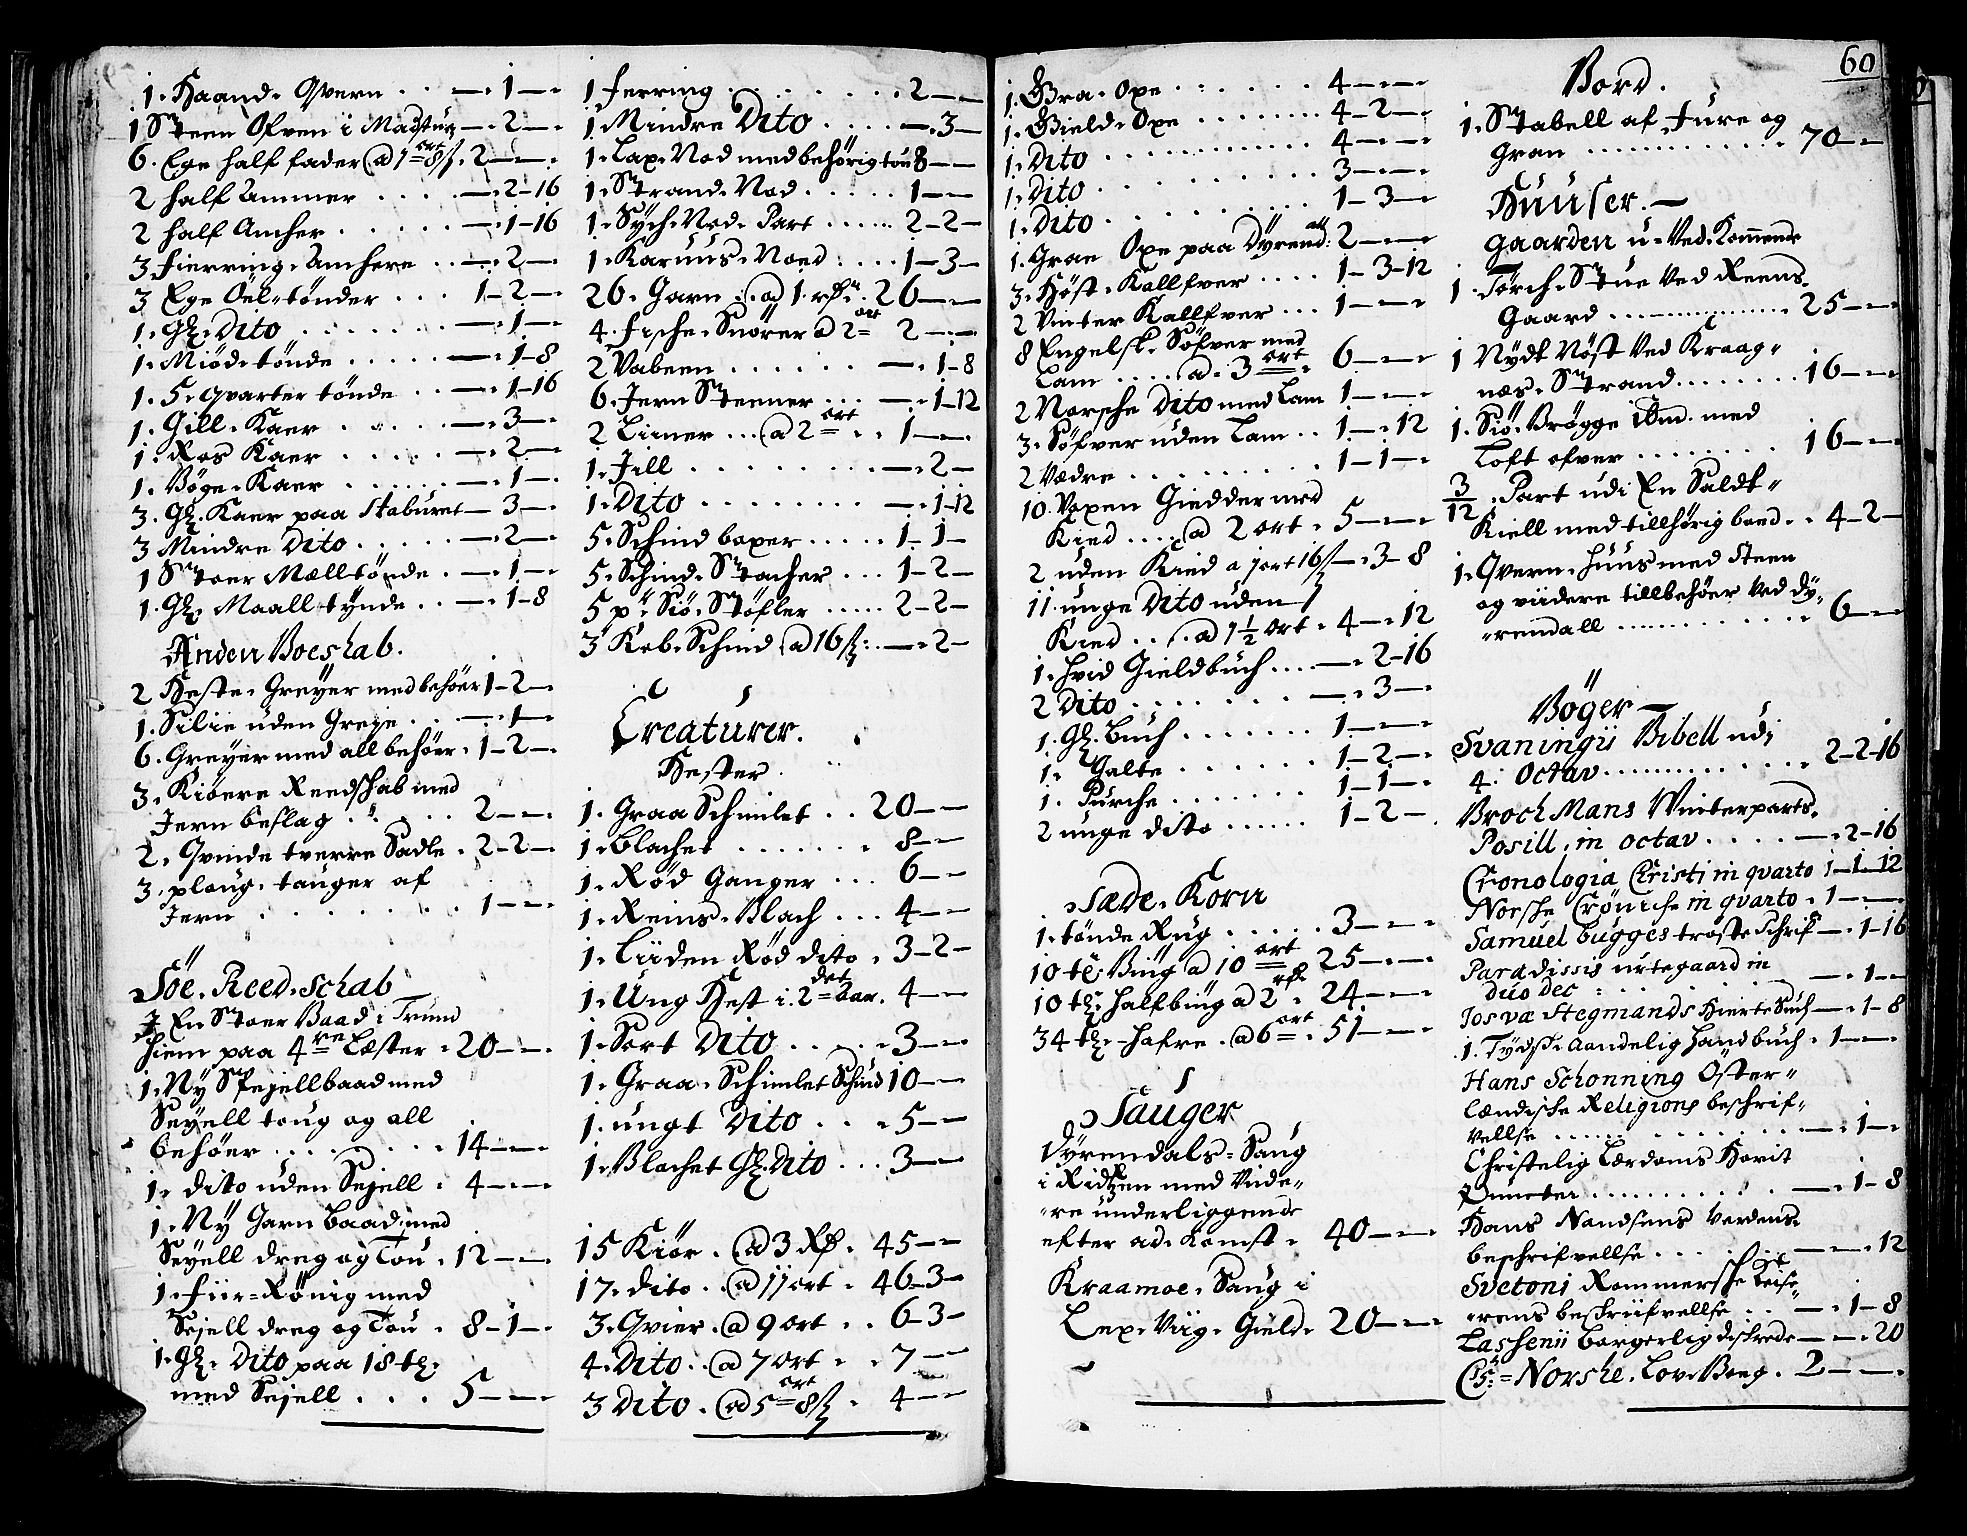 1. Haand. Qvern . . — 1 —
1 Steen Ofven i Madstug — 2 —
6. Ege half fader @ 1 ort 8 ß. 2 — —
2 half Ammer . . . . — 2 - 16
2 half Ancher . . . . . — 1 - 16
3 fierring. Anchere . . — 2 —
3 Ege Oel-tønder . . . 1 - 2 —
1. Gl. Dito . . . . . . — 1 —
1. Miød. tønde . . . . . — 1 - 8
1. 5. qvarter tønde . . . — 1 - 16
1. Gill. Kaer . . . . — 3 —
1. Ros Kaer . . . . . — 2 —
1. Bøge. Kaer . . . . . — 1 —
3. Gl. Kaer paa Staburet — 3 —
3 Mindre Dito . . . . . — 2 —
1 Stoer Mælltønde . — 1 —
1. Gl. Maall tynde . . — 1 - 8
Anden Boeskab.
2 Heste. Greyer med behøer 1 - 2 —
1. Silie uden Greje . . — 1 —
6. Greyer med all behøer. 1 - 2 —
3. Kiøere Reedskab med
Jern beslag . . . . . 2 — —
2. Qvinde tverre Sadle . 2 - 2 —
3. ploug. tanger af
Jern . . . . . . . 1 — —
Söe. Reed. Schab
1 En Stoer Baad i Trund
hiem paa 4re Læster . 20 — —
1. Ny Spejellbaad med
Seyell toug og all
behöer . . . . . . . 14 — —
1. dito uden Sejell . 4 — —
1. Ny Garn Baad med
Seyell dreg og Tou . 12 — —
1. fiir-Rönig med
Sejell dreg og Tou . 8 - 1 —
1. Gl. Dito paa 18 tl.
med Sejell . . . 5 — —
1 ferring . . . . . . . 2 — —
1. Mindre Dito . . . . — 3 —
1. Lax. Nod med behörig tou 8 — —
1. Strand. Nod . . . . . 1 — —
1. Sych. Nod. Part . . . . . 2 - 2 —
1. Karuus. Noed . . . . 1 - 3 —
26. Garn . @ 1 rdr. 26 — —
4. fische. Snörer @ 2 ort 2 — —
2 Vabeen . . . . . . — 1 - 8
6. Jern Steener . . . — 1 - 12
2 Liiner . . . @ 2 ort . . 1 — —
1. Jill . . . . . . . . — 2 —
1. Dito . . . . . . . . — 1 - 12
5. Schind boxer . . . . . 1 - 1 —
5. Schind. Stacher . . . 1 - 2 —
5 pr. Siö. Støfler . . . . . 2 - 2 —
3 Kob. Schind @ 16 ß . — 2 —
Creaturer.
Hester.
1. Graa Schimlet . . 20 — —
1. blachet . . . . . . . 8 — —
1. Rød Ganger . . . 6 — —
1. Reins. Blach . . . 4 — —
1. Liiden Rød dito . 3 - 2 —
1. Ung Hest i 2 det Aar. 4 — —
1. Sort Dito . . . . . 3 — —
1. Graa. Schimlet Schiud 10 — —
1. ungt Dito . . . 5 — —
1. Blachet Gl. Dito . . . 3 — —
15 Kiör . @ 3 Rdr. 45 — —
17. dito . @ 11 ort . 46 - 3 —
3. Qvier . @ 9 ort . . 6 - 3 —
4. Dito . . @ 7 ort . . 7 — —
3 Dito . @ 5 ort 8 ß . 4 — —
60
1. Graa. Oxe . . . . . . 4 — —
1. Gield. Oxe . . . . . . . . 4 - 2 —
1. Dito . . . . . . . . . . . 4 — —
1. Dito . . . . . . . . . . 3 — —
1. Dito . . . . . . . . . . 1 - 3 —
1. Grae Oxe paa Dyrend: 2 — —
3. Höst. Kallfver . . . . 1 - 3 - 12
2 Vinter Kallfver . . . 1 — —
8 Engelsk. Söfver med
Lam . . . . @ . 3 ort . 6 — —
2 Norsche Dito med Lam 1 — —
3. Søfver uden Lam . . 1 — 12
2 Vædre . . . . . . . . . 1 - 1 —
10. Voxen Giedder med
Kied . . . . @ 2 ort . 5 — —
2 uden Kied a 1 ort 16 ß — 3 - 8
11. unge Dito uden
Kied . . . @ 1 ½ ort . 4 — 12
1. hvid Gieldbuch . . . . — 2 - 16
2 Dito . . . . . . . — 3 —
1. Gl. Buch . . . . . . . 1 — —
1. Galte . . . . . . . 1 - 2 —
1. Purche . . . . . . . 1 - 1 —
2 unge dito . . . . . . 1 - 2 —
Sæde. Korn
1. tønde Rug . . . . . 3 — —
10 tl. Biug @ 10 ort 25 — —
10 tl. halfbiug @ 2 rdr . 24 — —
34 tl. hafre . @ 6 ort . 51 — —
Sauger
Dyrendals. Saug
i Ridtzen med Vide-
re underliggende
efter ad. Komst . 40 — —
Kraamoe. Saug i
Lex. Viig. Gield. 20 — —
Bord.
1. Stabell af Fure og
Gran . . . . . . . . . . . 70 — —
Huuser. —
Gaarden u. Ved. Kommende
1. Törch. Stue ved Reens.
Gaard . . . . . . . . . . . 25 — —
1 Nydt Nøst Ved Kraag-
næs. Strand . . . . . . . . 16 — —
1. Siö. Brøgge ibm. med
Loft ofver . . . . . . . . . 16 — —
3/12. Part udi En Saldt-
Kiell med tillhörig boed . . 4 - 2 —
1. Qvern. huus med Steen
og viidere tillbehöer ved Dy-
rendall . . . . . . . . . . . . . 6 — —
Bøger —
Svaningii Bibell udi
4. Octav . . . . . . . . . . . 2 - 2 - 16
Broch Mans Winterparts.
Posill. in octav . . . . — 2 - 16
Cronologia Christi in qvarto 1 - 1 - 12
Norsche Crönicke in qvarto . 1 — —
Samuel bugges trøste Schrif — 1 - 16
Paradissis urtegaard in
duo dec . . . . . . . . — 1 —
Josvæ Stegmands Hierte Such — 1 - 8
1. Tydsk. aandelig handbuch . 1 — —
Hans Schonning Öster-
lændische Religions beschrif-
vellse . . . . . . . . . . — 1 —
Christelig Lærdoms Hovit
Puncter . . . . . . . . . . — 1 - 8
Hans Nandsens Verdens.
beschrifvellse . . . . . — — 12
Svetoni Rommerske Keise-
rens beschriifvellse . . — 1 - 8
Lassenii borgerlig diskrede — — 20
C: 5. Norske. Lov. Bog . 2 — —